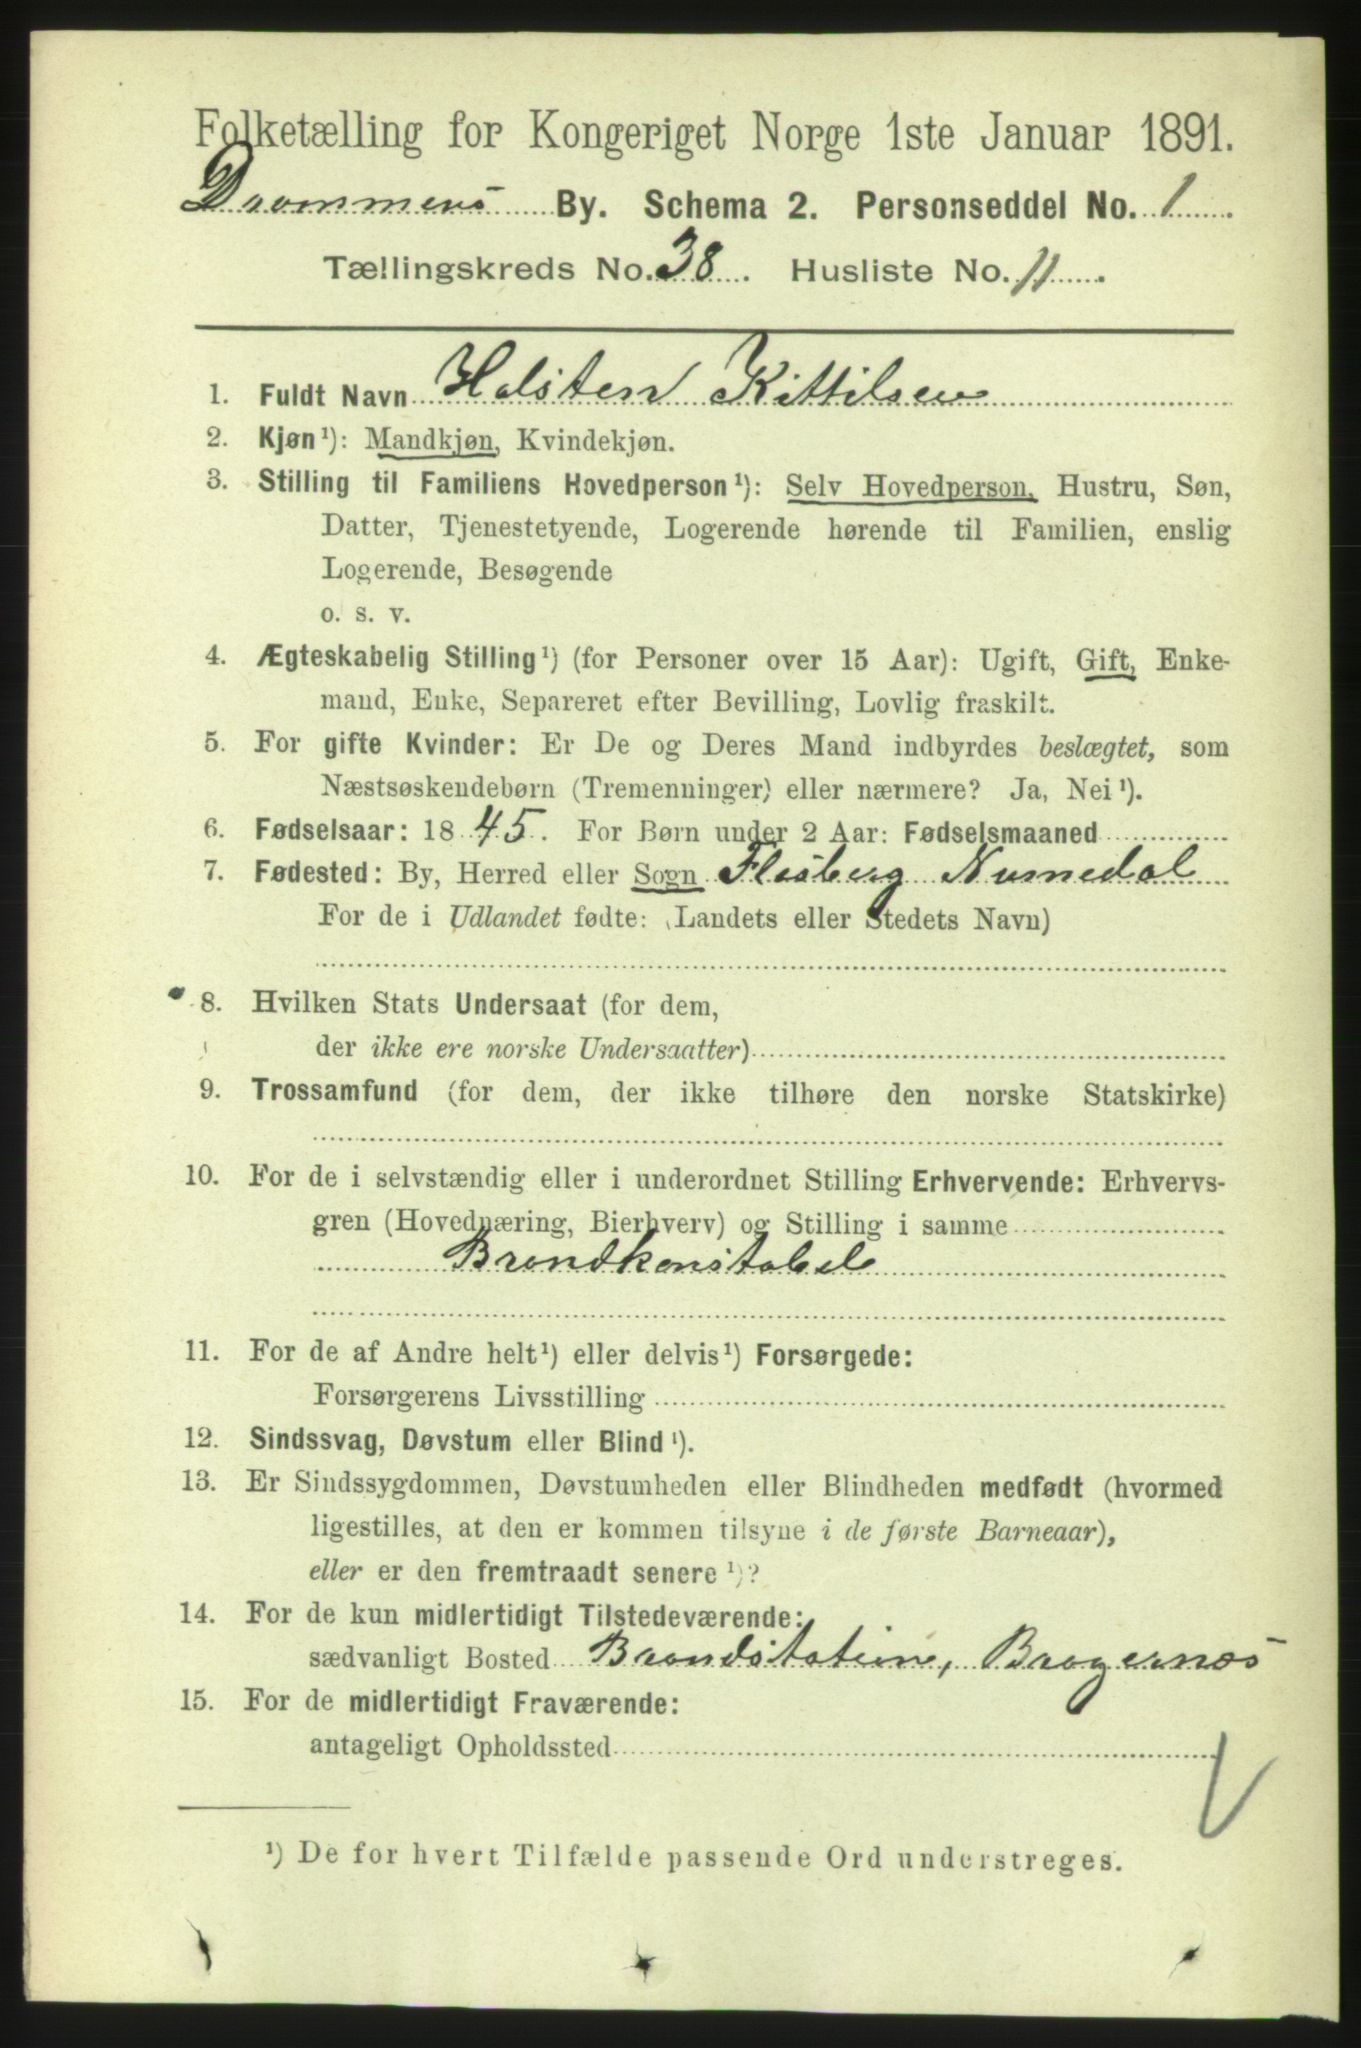 Folketælling for Kongeriget Norge 1ste Januar 1891.
Drammens By. Schema 2. Personseddel No. 1.
Tællingskreds No. 38. Husliste No. 11.
1. Fuldt Navn Holsten Kittilsen
2. Kjøn¹): Mandkjøn, Kvindekjøn.
3. Stilling til Familiens Hovedperson¹): Selv Hovedperson, Hustru, Søn,
Datter, Tjenestetyende, Logerende hørende til Familien, enslig
Logerende, Besøgende
o. s. v.
4. Ægteskabelig Stilling¹) (for Personer over 15 Aar): Ugift, Gift, Enke-
mand, Enke, Separeret efter Bevilling, Lovlig fraskilt.
5. For gifte Kvinder: Er De og Deres Mand indbyrdes beslægtet, som
Næstsøskendebørn (Tremenninger) eller nærmere? Ja, Nei¹).
6. Fødselsaar: 1845. For Børn under 2 Aar: Fødselsmaaned
7. Fødested: By, Herred eller Sogn Flesberg Numedal
For de i Udlandet fødte: (Landets eller Stedets Navn)
8. Hvilken Stats Undersaat (for dem,
der ikke ere norske Undersaatter)
9. Trossamfund (for dem, der ikke tilhøre den norske Statskirke)
10. For de i selvstændig eller i underordnet Stilling Erhvervende: Erhvervs-
gren (Hovednæring, Bierhverv) og Stilling i samme
Brandkonstabel
11. For de af Andre helt¹) eller delvis¹) Forsørgede:
Forsørgerens Livsstilling
12. Sindssvag, Døvstum eller Blind¹).
13. Er Sindssygdommen, Døvstumheden eller Blindheden medfødt (hvormed
ligestilles, at den er kommen tilsyne i de første Barneaar),
eller er den fremtraadt senere¹)?
14. For de kun midlertidigt Tilstedeværende:
sædvanligt Bosted Brandstation, Bragernæs
15. For de midlertidigt Fraværende:
antageligt Opholdssted
¹) De for hvert Tilfælde passende Ord understreges.